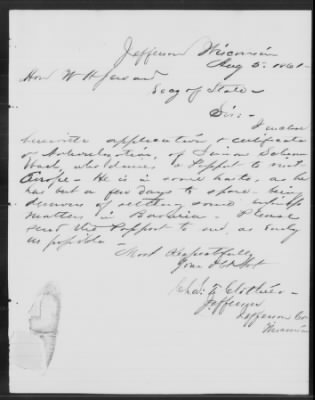 Jefferson Wisconsin
Aug 5. 1861
Hon W H Seward
Secy of State
Sir -
I enclose
herewith application & certificate
of Naturalization, of
who desires a Passport to visit
Europe - He is in some haste, as he
has but a few days to spare - being
desirous of settling some
matters in Bavaria - Please
send the Passport to me, as early
as possible -
Most Respectfully
Your Obt Svt
Chas.
Jefferson
Jefferson Co
Wisconsin